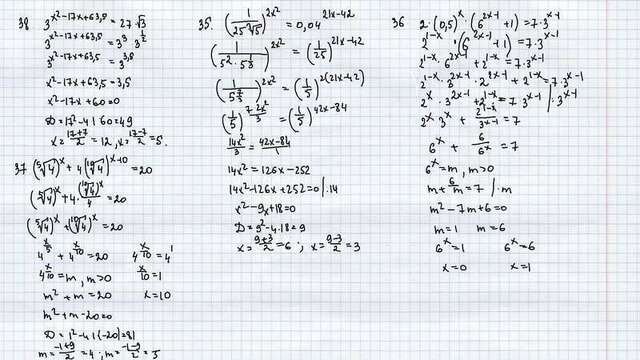 38 3^(x²-17x+63,5) = 27√3
3^(x²-17x+63,5) = 3³ · 3^(1/2)
3^(x²-17x+63,5) = 3^(3,5)
x²-17x+63,5=3,5
x²-17x+60=0
D=17²-4·1·60=49
x=(17+7)/2=12, x=(17-7)/2=5.
37 (⁵√4)^x + 4(¹⁰√4)^(x-10) = 20
(⁵√4)^x + 4·(¹⁰√4)^x/4 = 20
(⁵√4)^x + (¹⁰√4)^x = 20
4^(x/5) + 4^(x/10) = 20
4^(x/10) = m, m>0
m² + m = 20
m² + m - 20 = 0
D = 1² - 4·1·(-20) = 81
m = (-1+9)/2 = 4; m = (-1-9)/2 =
4^(x/10) = 4¹
x/10 = 1
x = 10
35. (1/(25·³√5))^(2x²) = 0,04^(21x-42)
(1/(5²·5^(1/3)))^(2x²) = (1/25)^(21x-42)
(1/5^(7/3))^(2x²) = (1/5)^(2(21x-42))
(1/5)^(7·2x²/3) = (1/5)^(42x-84)
14x²/3 = (42x-84)/1
14x² = 126x - 252
14x²-126x+252=0 |:14
x²-9x+18=0
D=9²-4·18=9
x=(9+3)/2=6; x=(9-3)/2=3
36 2·(0,5)^x·(6^(2x-1)+1)=7·3^(x-1)
2^(1-x)·(6^(2x-1)+1)=7·3^(x-1)
2^(1-x)·6^(2x-1)+2^(1-x)=7·3^(x-1)
2^(1-x)·3^(2x-1)·2^(2x-1)+2^(1-x)=7·3^(x-1)
2^x·3^(2x-1)+2^(1-x)=7·3^(x-1) |:3^(x-1)
2^x·3^x+2^(1-x)/3^(x-1)=7
6^x + 6/6^x = 7
6^x=m, m>0
m+6/m=7 |·m
m²-7m+6=0
m=1 m=6
6^x=1 6^x=6
x=0 x=1